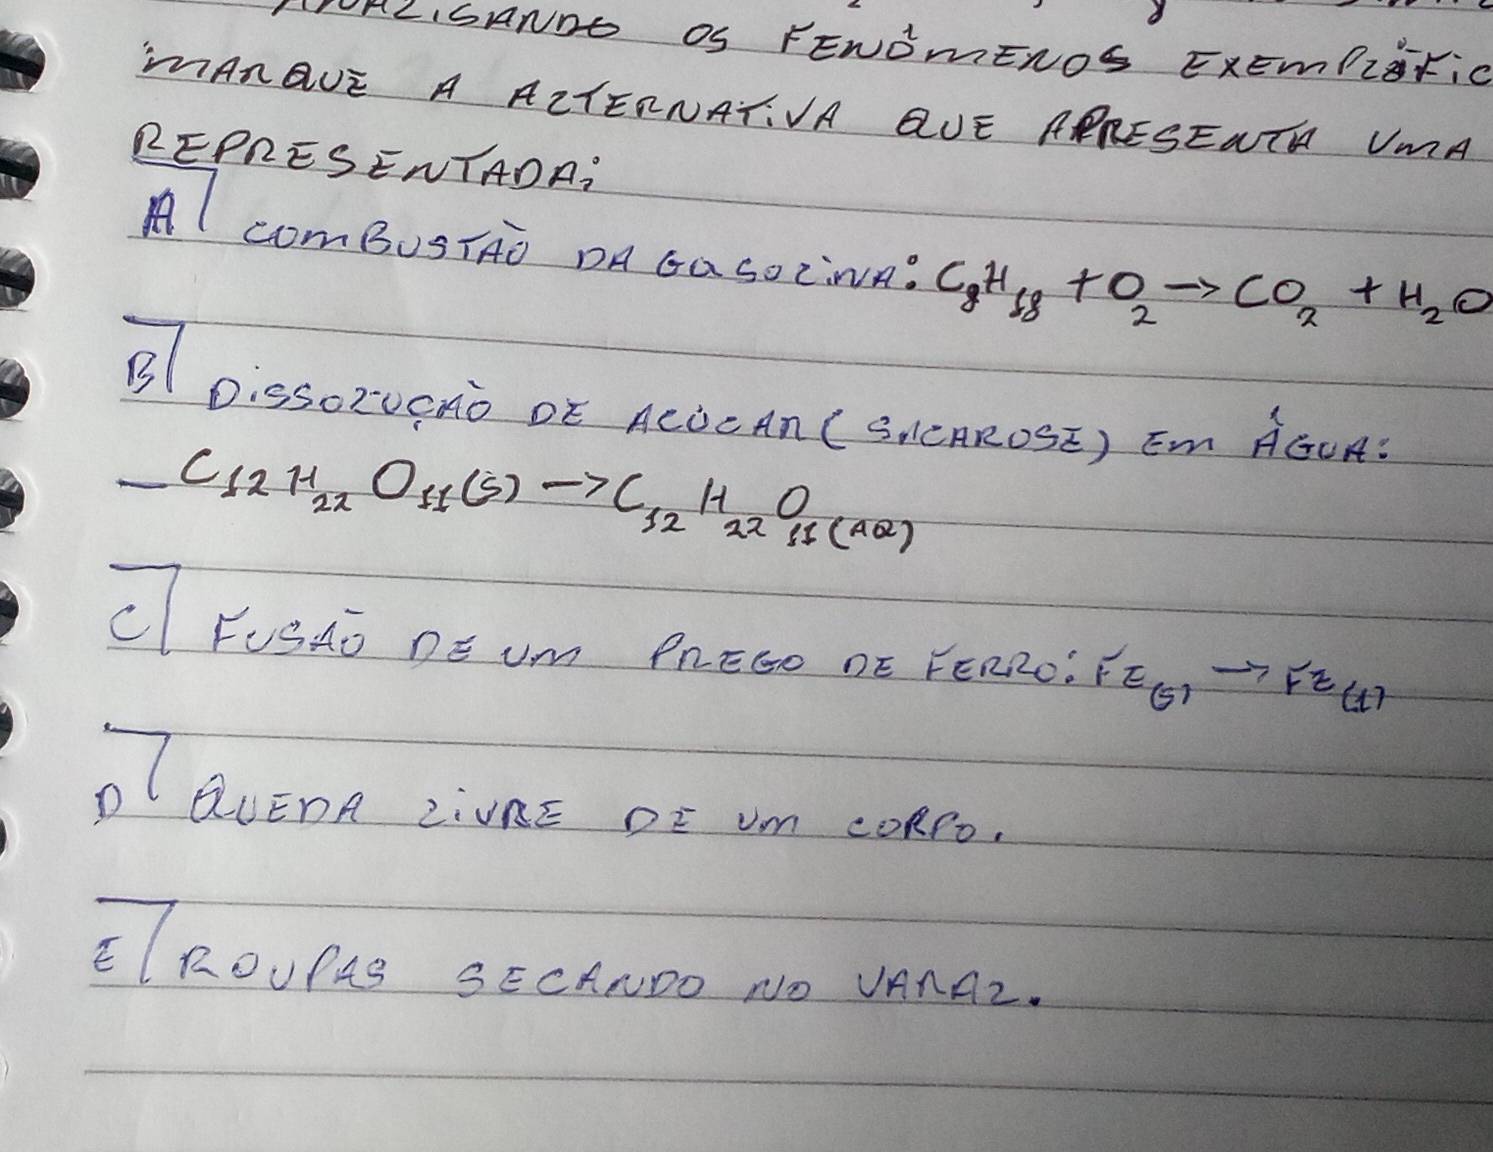 ANALISANDO OS FENÔMENOS
MARQUE A ALTERNATIVA QUE APRESENTA UMA
REPRESENTADA:
A) COMBUSTÃO DA GASOLINA: C₈H₁₈ + O₂ → CO₂ + H₂O
B) DISSOLUÇÃO DE AÇÚCAR (SACAROSE) EM ÁGUA:
— C₁₂H₂₂O₁₁(S) → C₁₂H₂₂O₁₁(AQ)
C) FUSÃO DE UM PREGO DE FERRO: FE(S) → FE(L)
D) QUEDA LIVRE DE UM CORPO.
E) ROUPAS SECANDO NO VARAL.